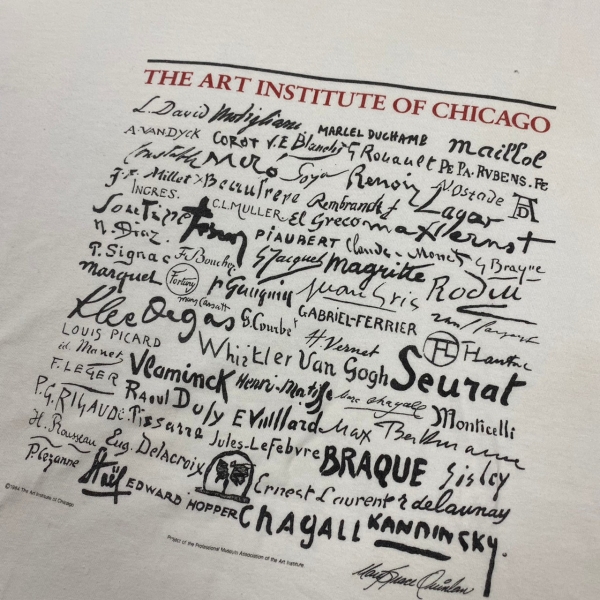 THE ART INSTITUTE OF CHICAGO
L. David Modigliani MARCEL DUCHAMB Maillol
A. VAN DYCK COROT V.E Blanchi G Rouault PE PA. RVBENS. FE
Constable Miró Goya Renoir V Ostade AD
J.F. Millet Beaufrere Rembrandt f Lagar
INGRES. C.L. MULLER El Greco max Ernst
N. Diaz. PIAUBERT Claude Monet G Braque
P. Signac F. Boucher G Jacquet Magritte Rodin
marquet Fortuny P Gauguin Juan Gris
mary Cassatt GABRIEL-FERRIER
Klee Degas G. Courbet H Vernet HTL HLautrec
LOUIS PICARD Whistler Van Gogh Seurat
éd. Manet
F. LEGER Vlaminck Henri-Matisse Marc chagall Monticelli
P.G. RIGAUD: Raoul Dufy E Vuillard Max Beckmann
H. Rousseau Pissarro Jules-Lefebvre BRAQUE Sisley
P. Cezanne Eug. Delacroix Ernest Laurent r delaunay
Staël EDWARD HOPPER Chagall KANDINSKY.
©1994 The Art Institute of Chicago.
Project of the Professional Museum Association of the Art Institute.
Mary Grace Quinlan